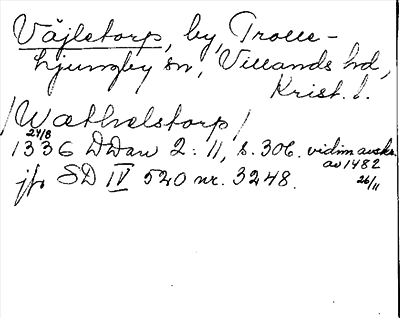 Väjletorp, by, Trolle-
Ljungby sn, Villands hd,
Krist. l.
/Wæthelstorp/
24/8
1336 DDan 2: 11, s. 306. vidim avskr.
av 1482
26/11
jfr SD IV 520 nr. 3248.